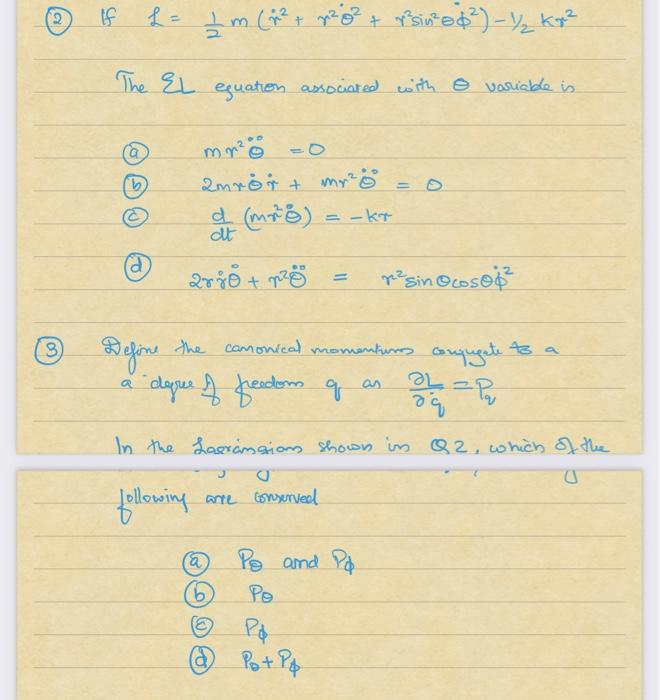 ② If ℒ = 1/2 m (ṙ² + r²θ̇² + r²sin²θϕ̇²) - 1/2 kr²
The EL equation associated with θ variable is
ⓐ mr²θ̈ = 0
ⓑ 2mrθ̇ṙ + mr²θ̈ = 0
ⓒ d/dt (mr²θ̇) = -kr
ⓓ 2rṙθ̇ + r²θ̈ = r²sinθcosθϕ̇²
③ Define the canonical momentum conjugate to a
a degree of freedom q as ∂L/∂q̇ = Pq
In the Lagrangian shown in Q2, which of the
following are conserved
ⓐ Pθ and Pϕ
ⓑ Pθ
ⓒ Pϕ
ⓓ Pθ + Pϕ